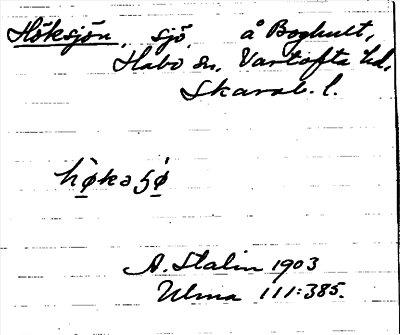 Höksjön, sjö, å Boghult,
Habo sn, Vartofta hd,
Skarab. l.
hø̀kəʖǿ
A. Stalin 1903
Ulma 111:385.